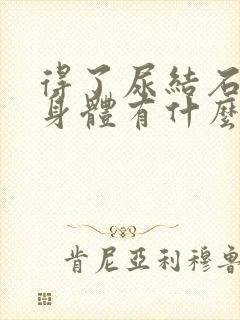 得了尿結石
身體有什麼
肯尼亞利穆魯